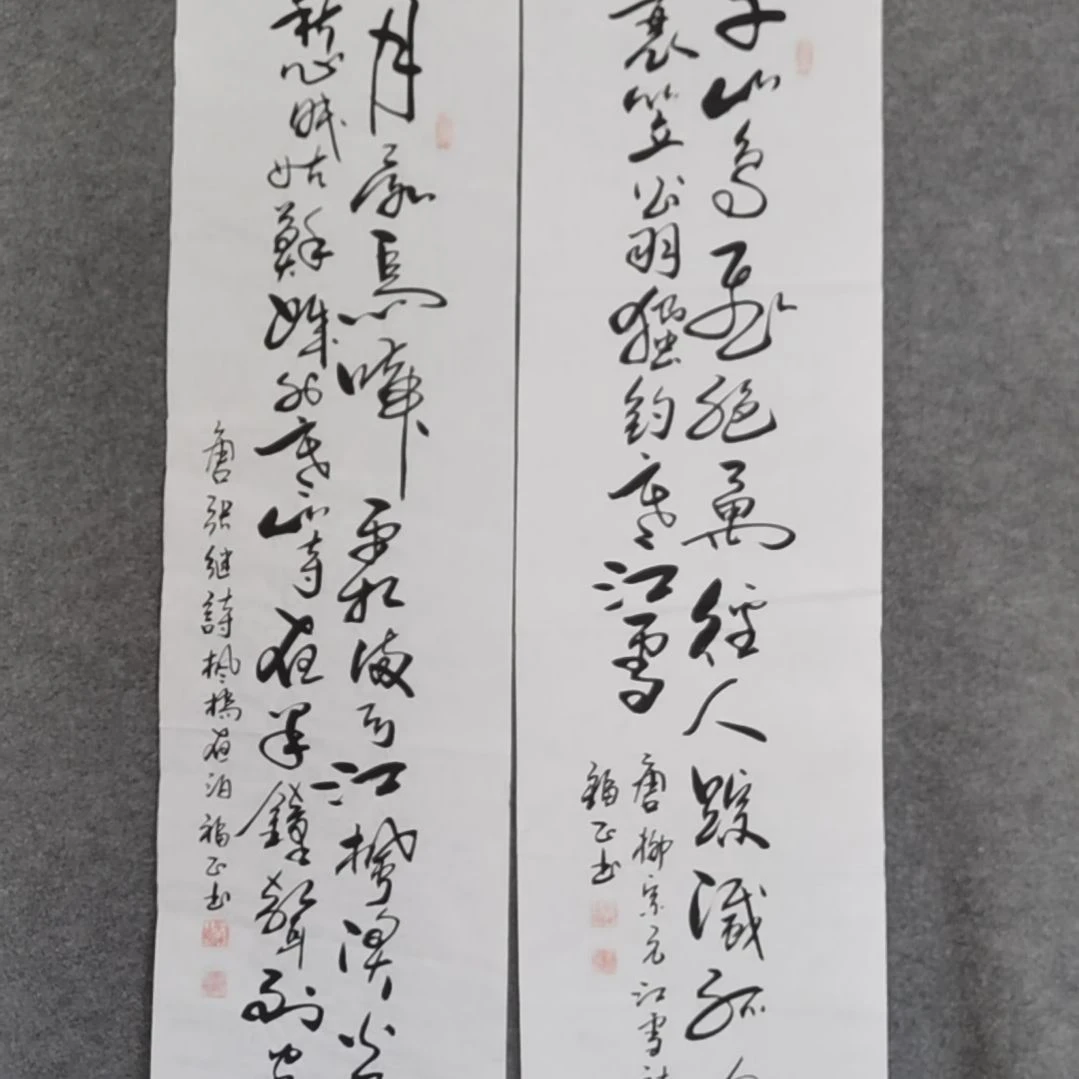 千山鳥飛絕萬徑人蹤滅孤
蓑笠翁獨釣寒江雪
唐柳宗元江雪詩
福正书
月落烏啼霜滿天江楓漁火
愁眠姑蘇城外寒山寺夜半鐘聲到客
唐張继詩楓橋夜泊福正书